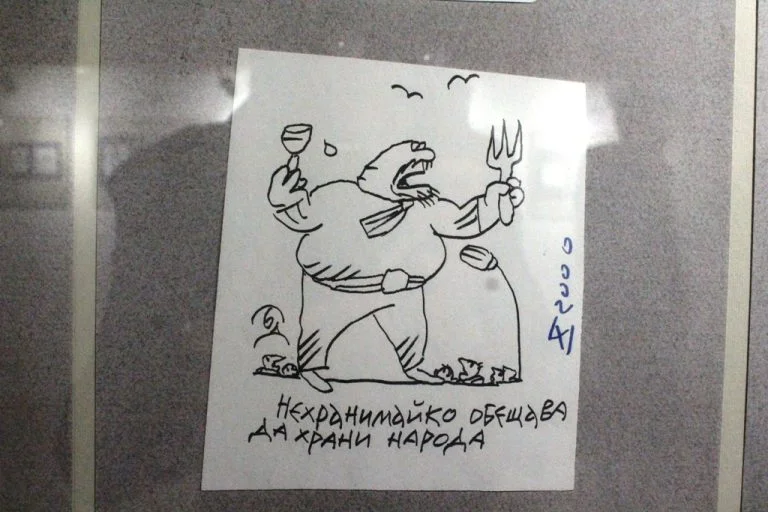 2000
НЕХРАНИМАЙКО ОБЕЩАВА
ДА ХРАНИ НАРОДА